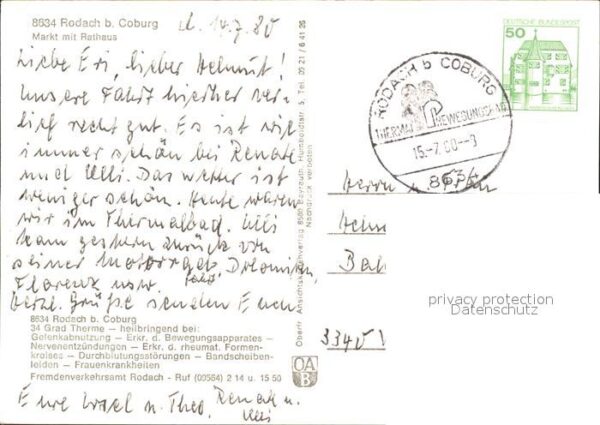 8634 Rodach b. Coburg
Markt mit Rathaus
d. 14.7.80
Liebe Evi, lieber Helmut!
Unsere Fahrt hierher ver-
lief recht gut. Es ist wie
immer schön bei Renate
und Ulli. Das Wetter ist
weniger schön. Heute waren
wir im Thermalbad. Ulli
kam gestern zurück von
seiner Motorrad Dolomiten,
Florenz usw. Fahrt
herzl. Grüße senden Euch
8634 Rodach b. Coburg
34 Grad Therme — heilbringend bei:
Gelenkabnutzung — Erkr. d. Bewegungsapparates —
Nervenentzündungen — Erkr. d. rheumat. Formen-
kreises — Durchblutungsstörungen — Bandscheiben-
leiden — Frauenkrankheiten
Fremdenverkehrsamt Rodach - Ruf (09564) 2 14 u. 15 50
Eure u. Theo, Renate u.
Ulli
Oberfr. Ansichtskartenverlag 8580 Bayreuth, Humboldtstr. 5, Tel. 09 21 / 6 41 26
Nachdruck verboten
OA
B
RODACH b COBURG
THERMAL BEWEGUNGSBAD
15.-7.80--9
8634
DEUTSCHE BUNDESPOST
50
Herrn u. Frau
Helm
Bal
3340 W
privacy protection
Datenschutz